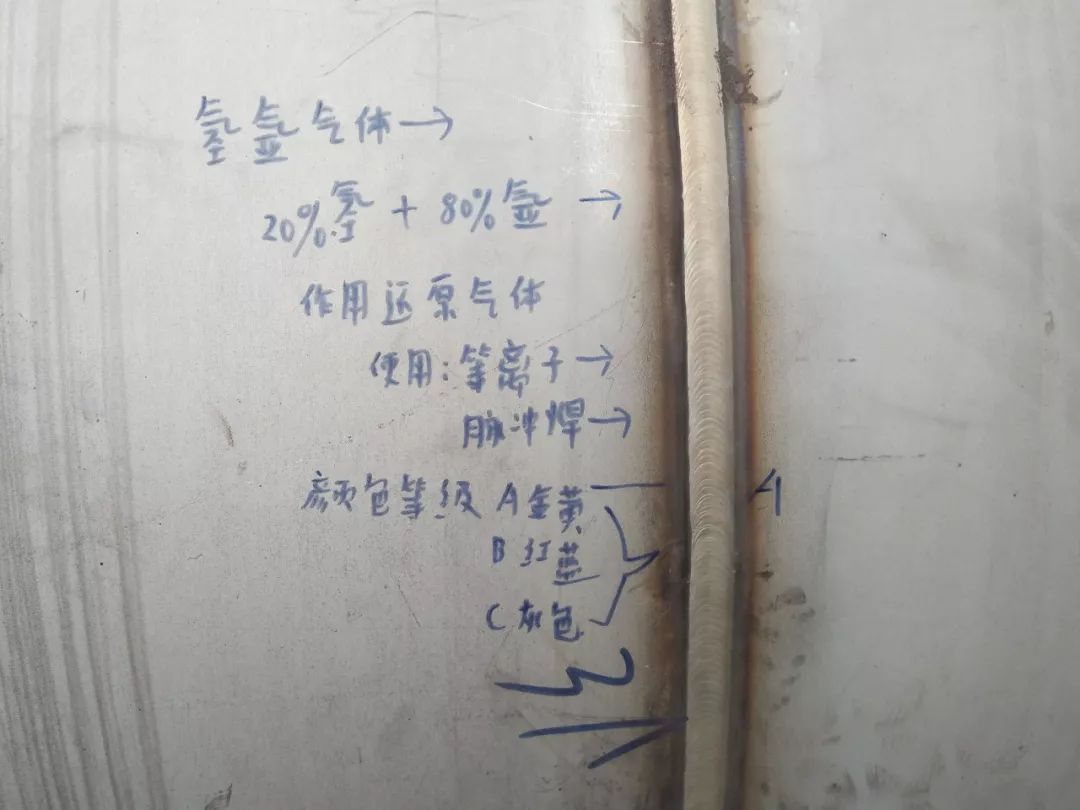 氢氩气体→
20%氢 + 80%氩 →
作用还原气体
使用:等离子→
脉冲焊→
颜色等级 A金黄 A
B 红蓝
C 灰色